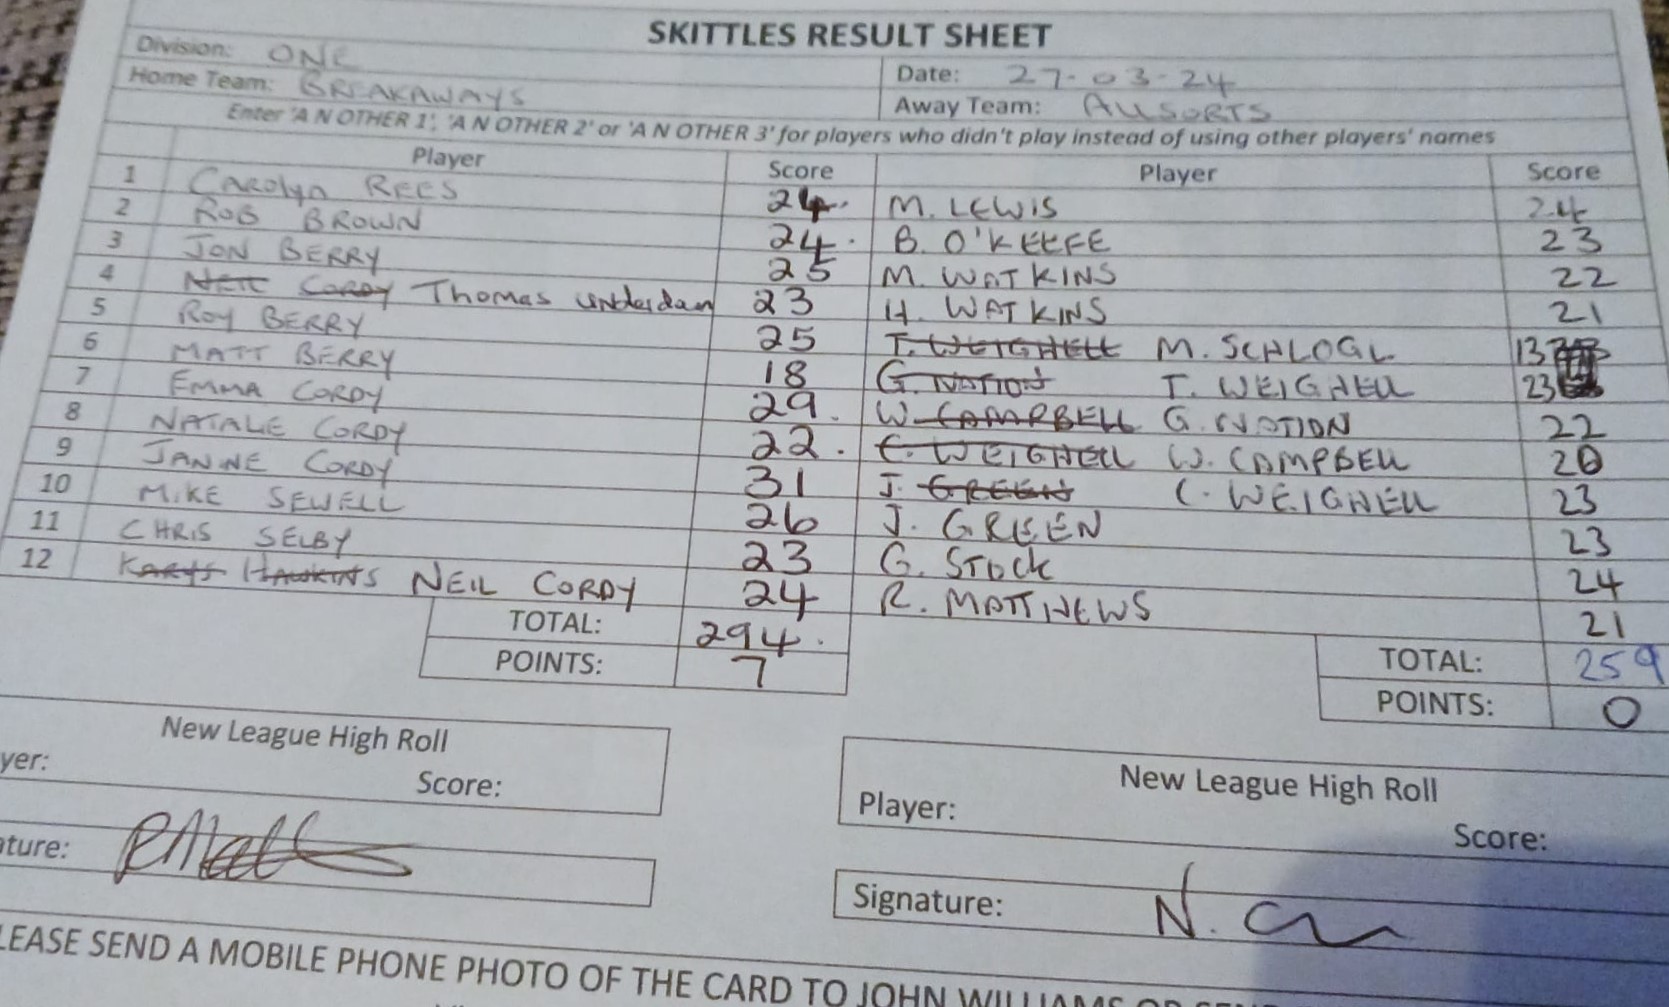 SKITTLES RESULT SHEET
Division: ONE
Date: 27-03-24
Home Team: BREAKAWAYS
Away Team: ALLSORTS
Enter 'A N OTHER 1', 'A N OTHER 2' or 'A N OTHER 3' for players who didn't play instead of using other players' names
Player Score Player Score
1 CAROLYN REES 24. M. LEWIS 24
2 ROB BROWN 24. B. O'KEEFE 23
3 JON BERRY 25 M. WATKINS 22
4 NEIL CORDY Thomas Underdan 23 H. WATKINS 21
5 ROY BERRY 25 T. WEIGHELL M. SCHLOGL 13
6 MATT BERRY 18 G. NATION T. WEIGHELL 23
7 EMMA CORDY 29. W. CAMPBELL G. NATION 22
8 NATALIE CORDY 22. C. WEIGHELL W. CAMPBELL 20
9 JANINE CORDY 31 J. GREEN C. WEIGHELL 23
10 MIKE SEWELL 26 J. GREEN 23
11 CHRIS SELBY 23 G. STOCK 24
12 KARYS HAWKINS NEIL CORDY 24 R. MATTHEWS 21
TOTAL: 294.
TOTAL: 259
POINTS: 7
POINTS: 0
New League High Roll
yer:
Score:
New League High Roll
Player:
Score:
ture:
Signature: N. C
LEASE SEND A MOBILE PHONE PHOTO OF THE CARD TO JOHN WILLIAMS OR